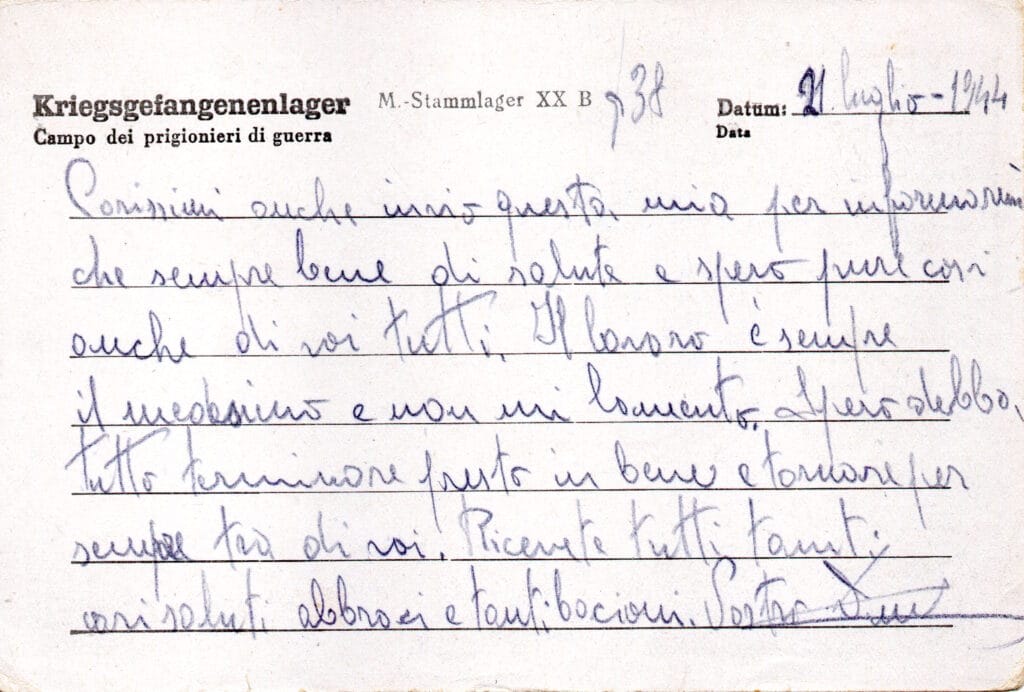 Kriegsgefangenenlager M.-Stammlager XX B 38 Datum: 21 luglio - 1944
Campo dei prigionieri di guerra Data
Carissimi anche invio questa mia per informarvi
che sempre bene di salute e spero pure così
anche di voi tutti. Il lavoro è sempre
il medesimo e non mi lamento. Spero debba
tutto terminare presto in bene e tornare per
sempre tra di voi. Ricevete tutti tanti
cari saluti abbraci e tanti bacioni. Vostro